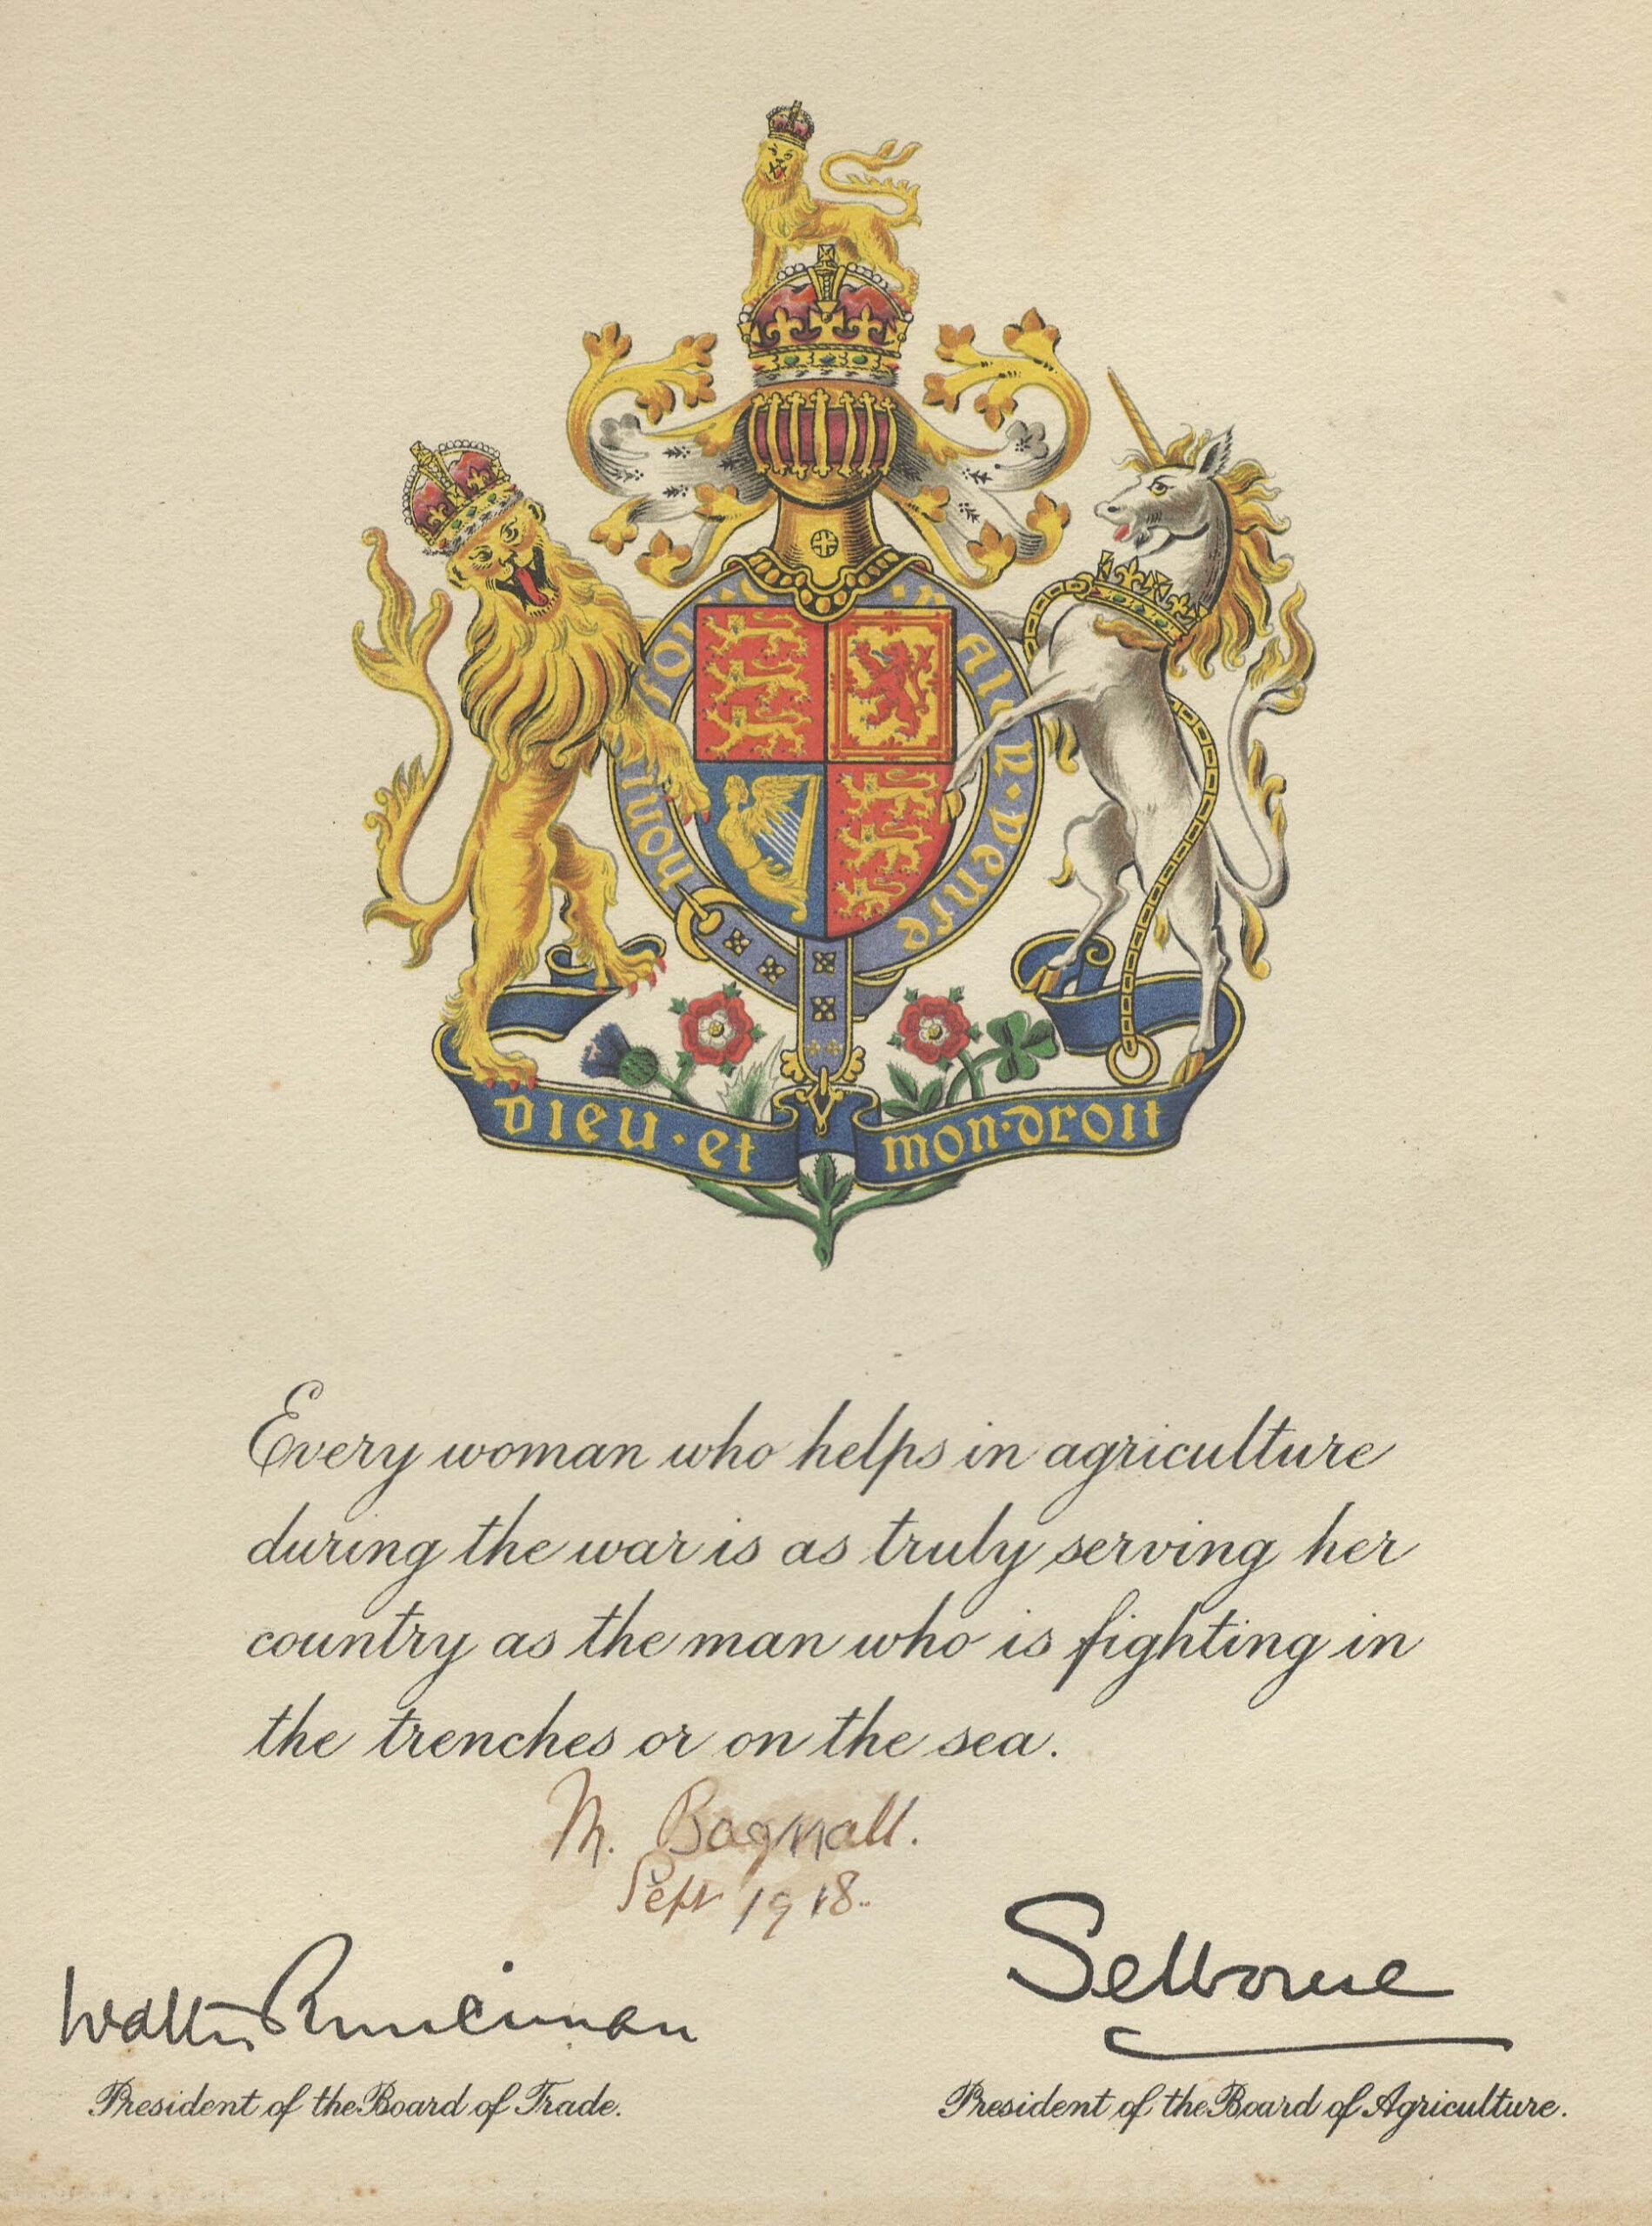 honi soit
mal y pense
Dieu · et mon · droit
Every woman who helps in agriculture
during the war is as truly serving her
country as the man who is fighting in
the trenches or on the sea.
M. Bagnall.
Sept 1918.
Walter Runciman
Selborne
President of the Board of Trade.
President of the Board of Agriculture.